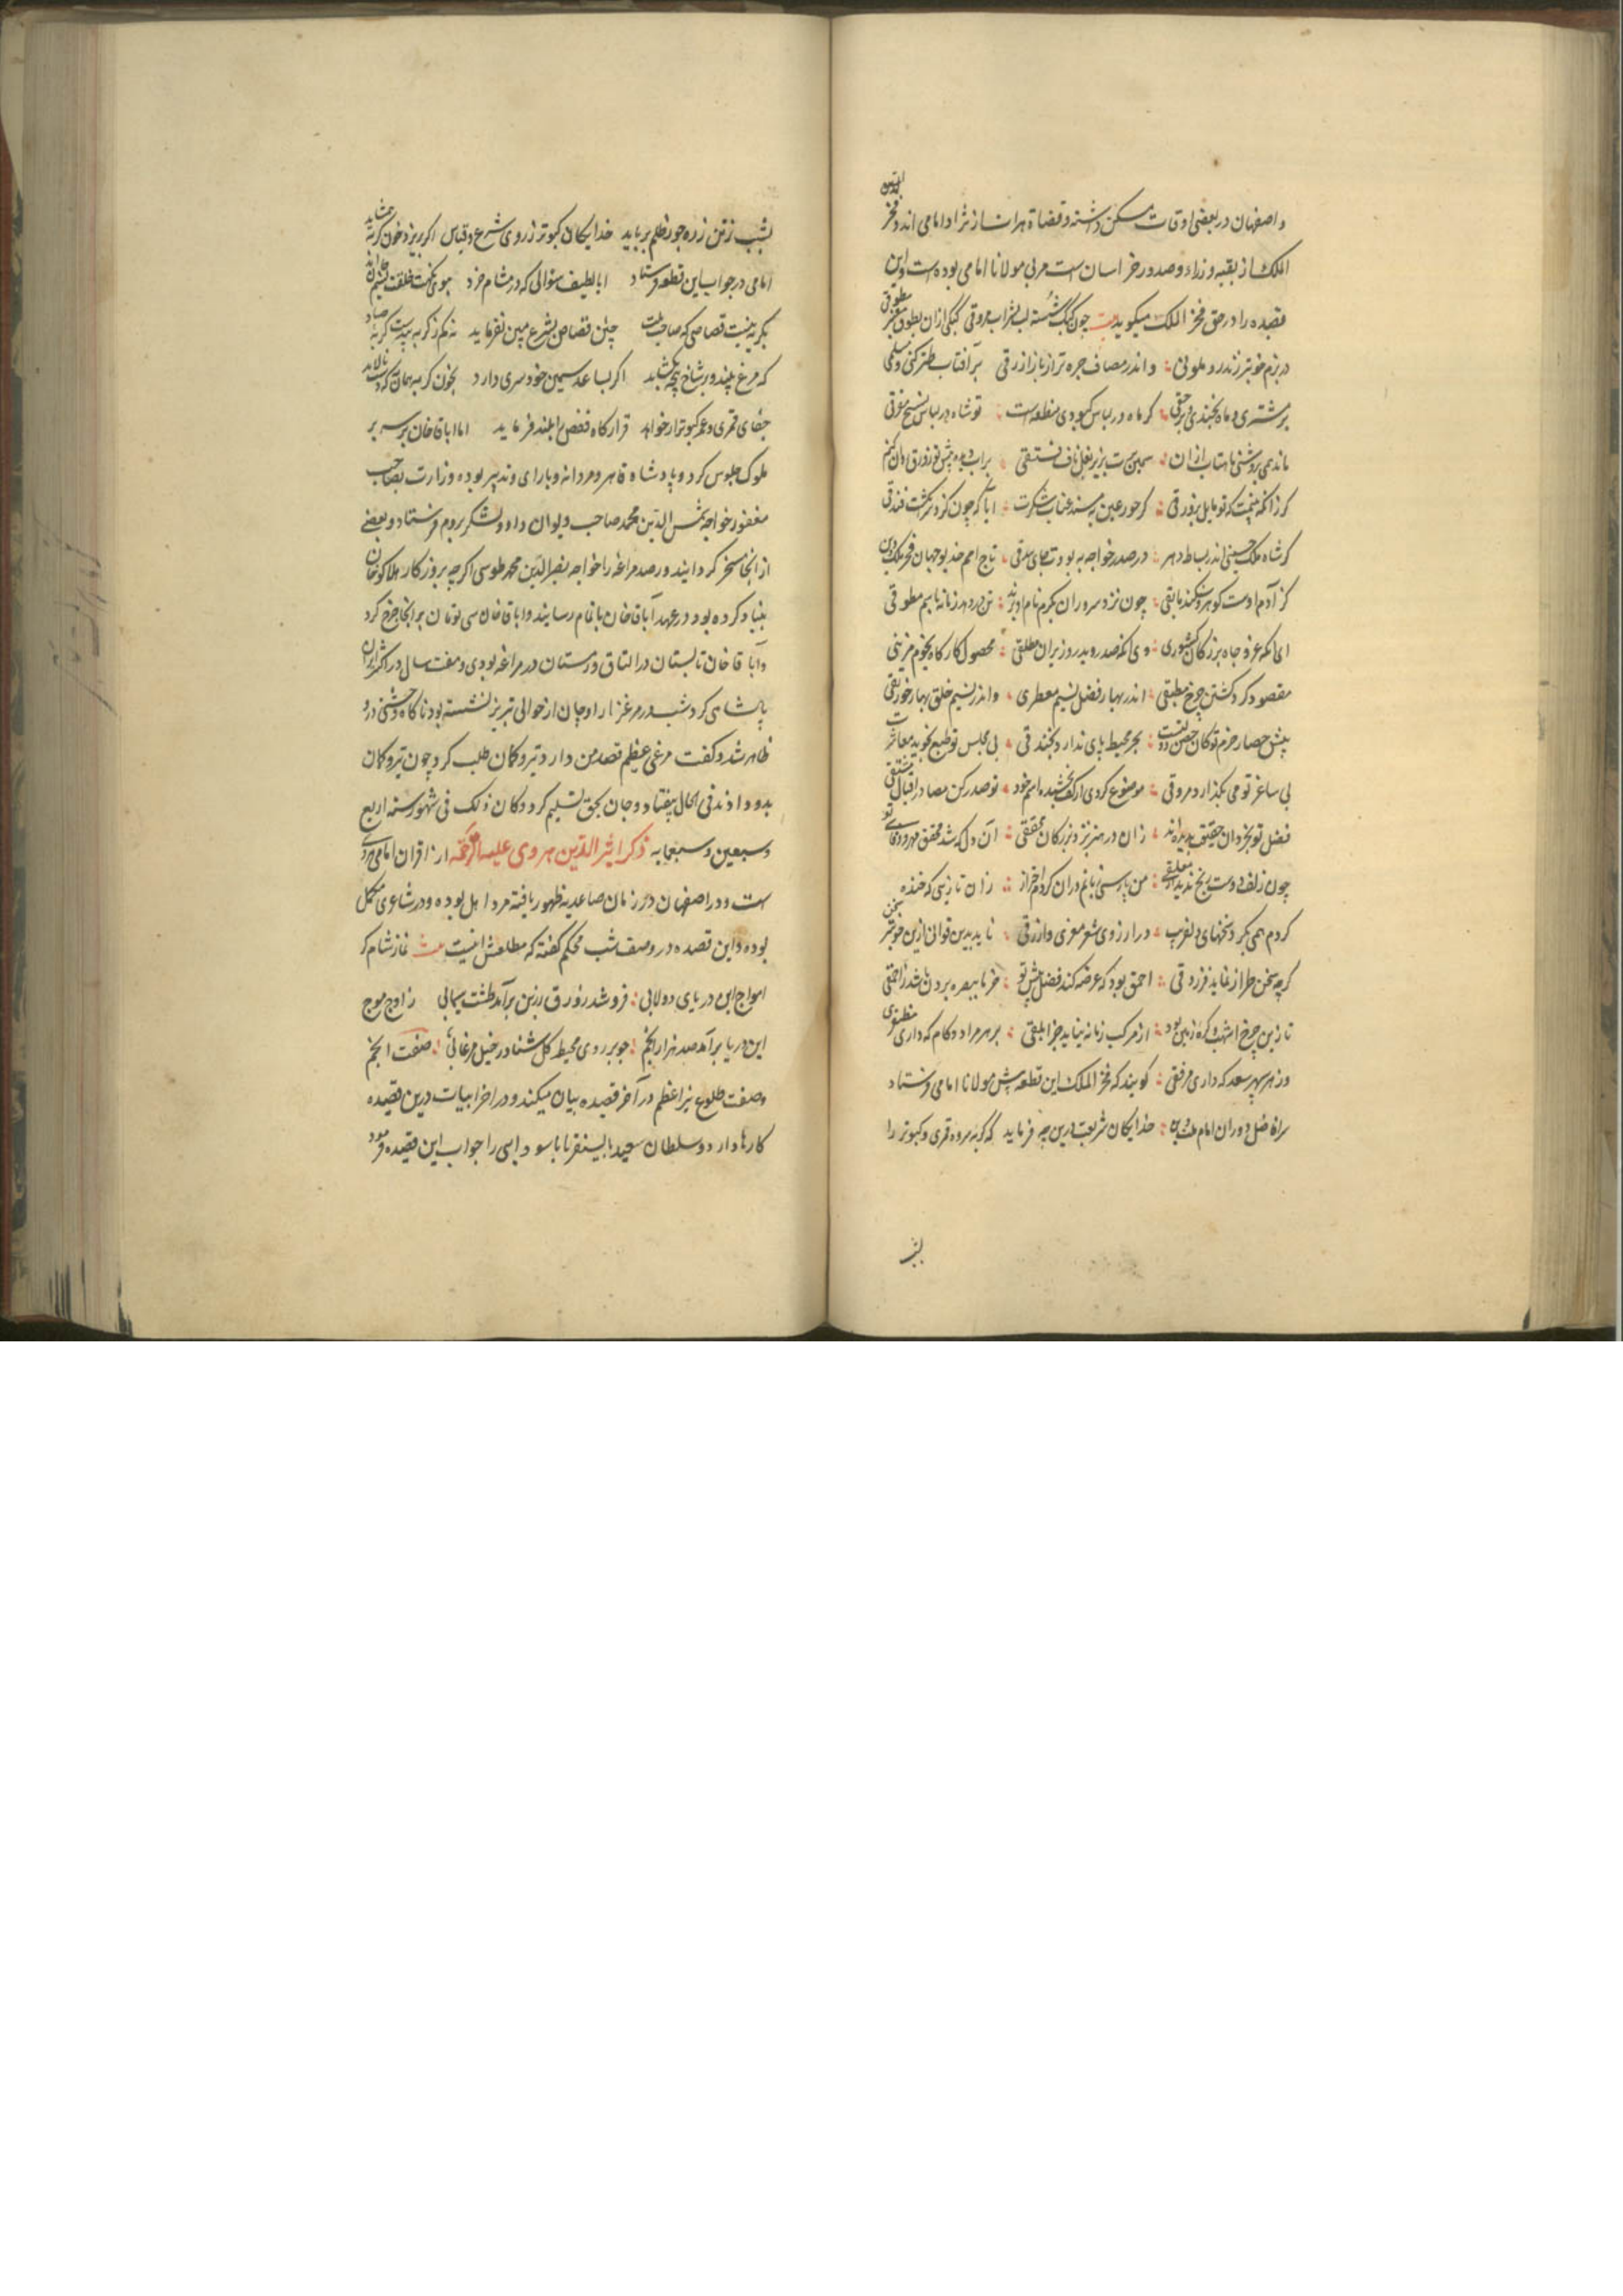 و اصفهان در بعضی اوقات مسکن داشته و قضاة هرات از نژاد امامی اند و فخر الدین
الملک از بقیه وزراء و صدور خراسان است مربی مولانا امامی بوده است و این
قصیده را در حق فخر الملک میکوید بیت چون کبک شسته لب بشراب مروقی کبکی ازان بطوق معنبر مطوقی
در بزم خوبتر ز تذرو ملونی و اندر مصاف چیره تر از باز ازرقی بر آفتاب طنز کنی و مسلمی
بر مشتری و ماه بخندی و برحقی کر ماه در لباس کبودی منطقه است تو شاه در لباس نسیج مغرقی
ماند همی بروشنی ماهتاب ازان سیمین برت بزیر بغلتاق فستقی بر آب دیده پیش تو زورق روان کنم
کر زانکه بینمت که تو مایل بزورقی کر حور عین به بیند عناب شکرت
کر شاه ملک حسنی اندر بساط دهر در صدر خواجه به بودت جای بیدقی تاج امم خدیو جهان فخر ملک و دین
کز آدم اوست کوهر و سکندر ما بقی چون نزد سروران بکرم نام او برند
ای آنکه عز و جاه بزرکان کشوری وی آنکه صدر و بدر وزیران مطلقی محصول کارکاه نجوم مزینی
مقصود کرد کشتن چرخ مطبقی اندر بهار فضل نسیم معطری و اندر نسیم خلق بهار خورنقی
پیش حصار حزم تو کان حصن دولتست بحر محیط پای ندارد بخندقی بی مجلس تو طبع نجوید معاشرت
بی ساغر تو می نکذارد مروقی موضوع کردی از کف بخشیده اسم جود تو صدر کن مصادر اقبال مشتقی
فضل تو بخردان حقیقت پدیده اند زان در هنر بزرکان محققی آن دل که شد محقق مهر و وفای تو
چون زلف دوست رنج ندید از معلقی من پارسی بدانم دران کردم احتراز زان تازیی که خنده
کردم همی بکر و سخنهای دلفریب در آرزوی شعر معزی و ازرقی ناید بدین قوافی ازین خوبتر سخن
کرچه سخن طراز نماید فرزدقی احمق بود که عرضه کند فضل پیش تو خرما ببصره بردن باشد ز احمقی
تا زین چرخ اشهب و کره زمین بود از مرکب زمانه نیاید جز ابلقی بر هر مراد و کام که داری مظفری
وز هر سپهر سعد که داری مرفقی کویند که فخر الملک این قطعه پیش مولانا امامی فرستاد
سر افاضل دوران امام ملت و دین خدایکان شریعت درین چه فرماید که کربه سر دو قمری و کبوتر را
بشب
بشب ز تن زره جور و ظلم برباید خدایکان کبوتر ز روی شرع و قیاس اکر بریزد خون کربه شاید
امامی در جواب این قطعه فرستاد ایا لطیف سؤالی که در مشام خرد ببوی نکهت خلقت نسیم جان آید
بکربه نیست قصاصی که صاحب ملت چنین قصاص بشرع مبین نفرماید نه کم ز کربه بیدست کربه صیاد
که مرغ بیند و بر شاخ پنجه بکشاید اکر بساعد سیمین خود سری دارد بخون کربه همان به که دست نالاید
بقای قمری و عمر کبوتر ار خواهد قرارکاه قفص را بلند فرماید اما اباقا خان بر سریر
ملوک جلوس کرد و پادشاه قاهر و مردانه و با رای و تدبیر بوده و وزارت بصاحب
مغفور خواجه شمس الدین محمد صاحب دیوان داد و لشکر بروم فرستاد و بعضی
از انجا مسخر کردانیدند و رصد مراغه را خواجه نصیر الدین محمد طوسی اکرچه بروزکار هلاکو خان
بنیاد کرده بود در عهد آباقا خان باتمام رسانید و اباقا خان سی تومان بر انجا خرج کرد
و آباقا خان تابستان در الاتاق و زمستان در مراغه بودی و هفت سال در اکثر ایران
پادشاهی کرد شب در مرغزار اوجان از حوالی تبریز نشسته بود ناکاه وحشتی درو
ظاهر شد و کفت مرغی عظیم قصد من دارد تیر و کمان طلب کرد چون تیر و کمان
بدو دادند فی الحال بیفتاد و جان بحق تسلیم کرد و کان ذلک فی شهور سنه اربع
و سبعین و سبعمایه ذکر اثیر الدین هروی علیه الرحمه از اقران امامی هروی
است و در اصفهان در زمان صاعدیه ظهور یافته مرد اهل بوده و در شاعری مکمل
بوده و این قصیده در وصف شب محکم کفته که مطلعش اینست بیت نماز شام کز
امواج این دریای دولابی فرو شد زورق زرین برآمد طشت سیمابی ز اوج موج
این دریا برآمد صد هزار انجم چو بر روی محیط کل شناور خیل مرغابی صفت انجم
وصفت طلوع نیر اعظم در آخر قصیده بیان میکند و در اخر ابیات درین قصیده
کارها دارد و سلطان سعید بایسنغر بابا سودایی را جواب این قصیده فرمود